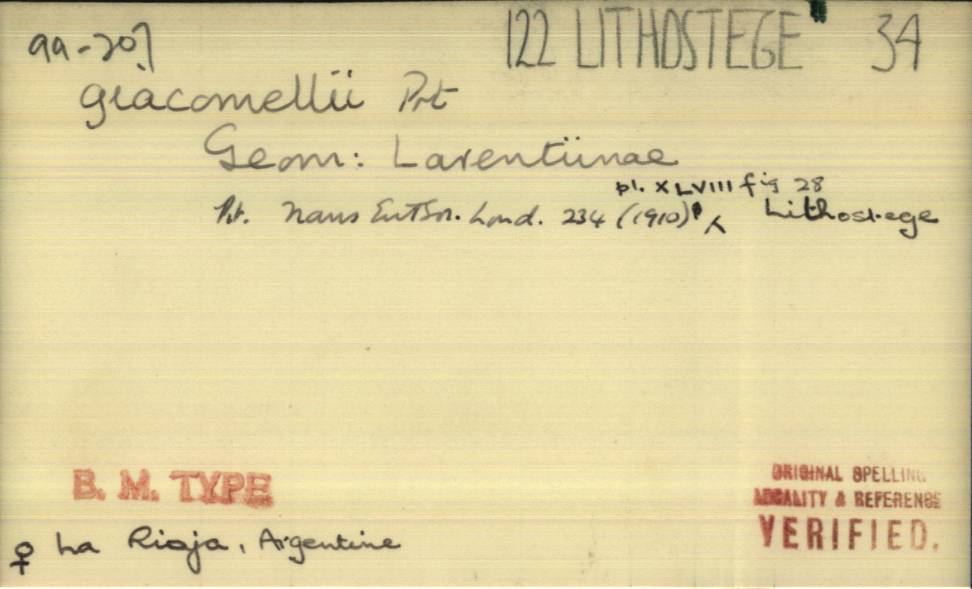 99-207
122 LITHOSTEGE 34
giacomellii Prt
Geom: Larentiinae
pl. XLVIII fig 28
Prt. Trans Ent Soc. Lond. 234 (1910) Lithostege
B. M. TYPE
ORIGINAL SPELLING
LOCALITY & REFERENCE
VERIFIED.
♀ La Rioja, Argentine